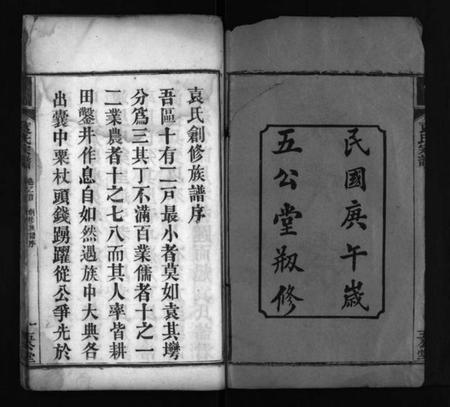 民國庚午歲
五公堂剏修
袁氏創修族譜序
吾區十有二戸最小者莫如袁其塆
分爲三其丁不滿百業儒者十之一
二業農者十之七八而其人率皆耕
田鑿井作息自如然遇族中大典各
出囊中粟杖頭錢踴躍從公爭先於